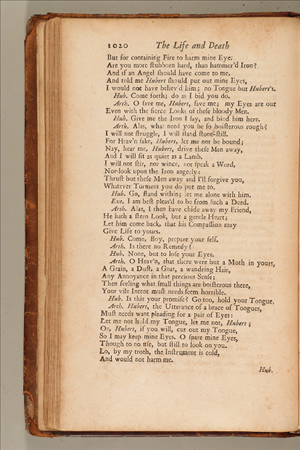 1020 The Life and Death
But for containing Fire to harm mine Eye.
Are you more stubborn hard, than hammer'd Iron?
And if an Angel should have come to me,
And told me Hubert should put out mine Eyes,
I would not have believ'd him; no Tongue but Hubert's.
Hub. Come forth; do as I bid you do.
Arth. O save me, Hubert, save me; my Eyes are out
Even with the fierce Looks of these bloody Men.
Hub. Give me the Iron I say, and bind him here.
Arth. Alas, what need you be so boisterous rough?
I will not struggle, I will stand stone-still.
For Heav'n sake, Hubert, let me not be bound;
Nay, hear me, Hubert, drive these Men away,
And I will sit as quiet as a Lamb.
I will not stir, nor wince, nor speak a Word,
Nor look upon the Iron angerly:
Thrust but these Men away and I'll forgive you,
Whatever Torment you do put me to.
Hub. Go, stand within; let me alone with him.
Exe. I am best pleas'd to be from such a Deed.
Arth. Alas, I then have chide away my Friend,
He hath a stern Look, but a gentle Heart;
Let him come back, that his Compassion may
Give Life to yours.
Hub. Come, Boy, prepare your self.
Arth. Is there no Remedy?
Hub. None, but to lose your Eyes.
Arth. O Heav'n, that there were but a Moth in yours,
A Grain, a Dust, a Gnat, a wandring Hair,
Any Annoyance in that precious Sense;
Then feeling what small things are boisterous there,
Your vile Intent must needs seem horrible.
Hub. Is this your promise? Go too, hold your Tongue.
Arth. Hubert, the Utterance of a brace of Tongues,
Must needs want pleading for a pair of Eyes:
Let me not hold my Tongue, let me not, Hubert;
Or, Hubert, if you will, cut out my Tongue,
So I may keep mine Eyes. O spare mine Eyes,
Though to no use, but still to look on you.
Lo, by my troth, the Instrument is cold,
And would not harm me.
Hub.